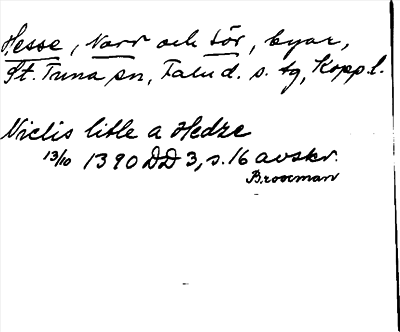 Hesse, Norr och Sör, byar,
St. Tuna sn, Falu d. s. tg, Kopp. l.
Niclis litle a Hedze
13/10 1390 DD 3, s. 16 avskr.
Brooeman